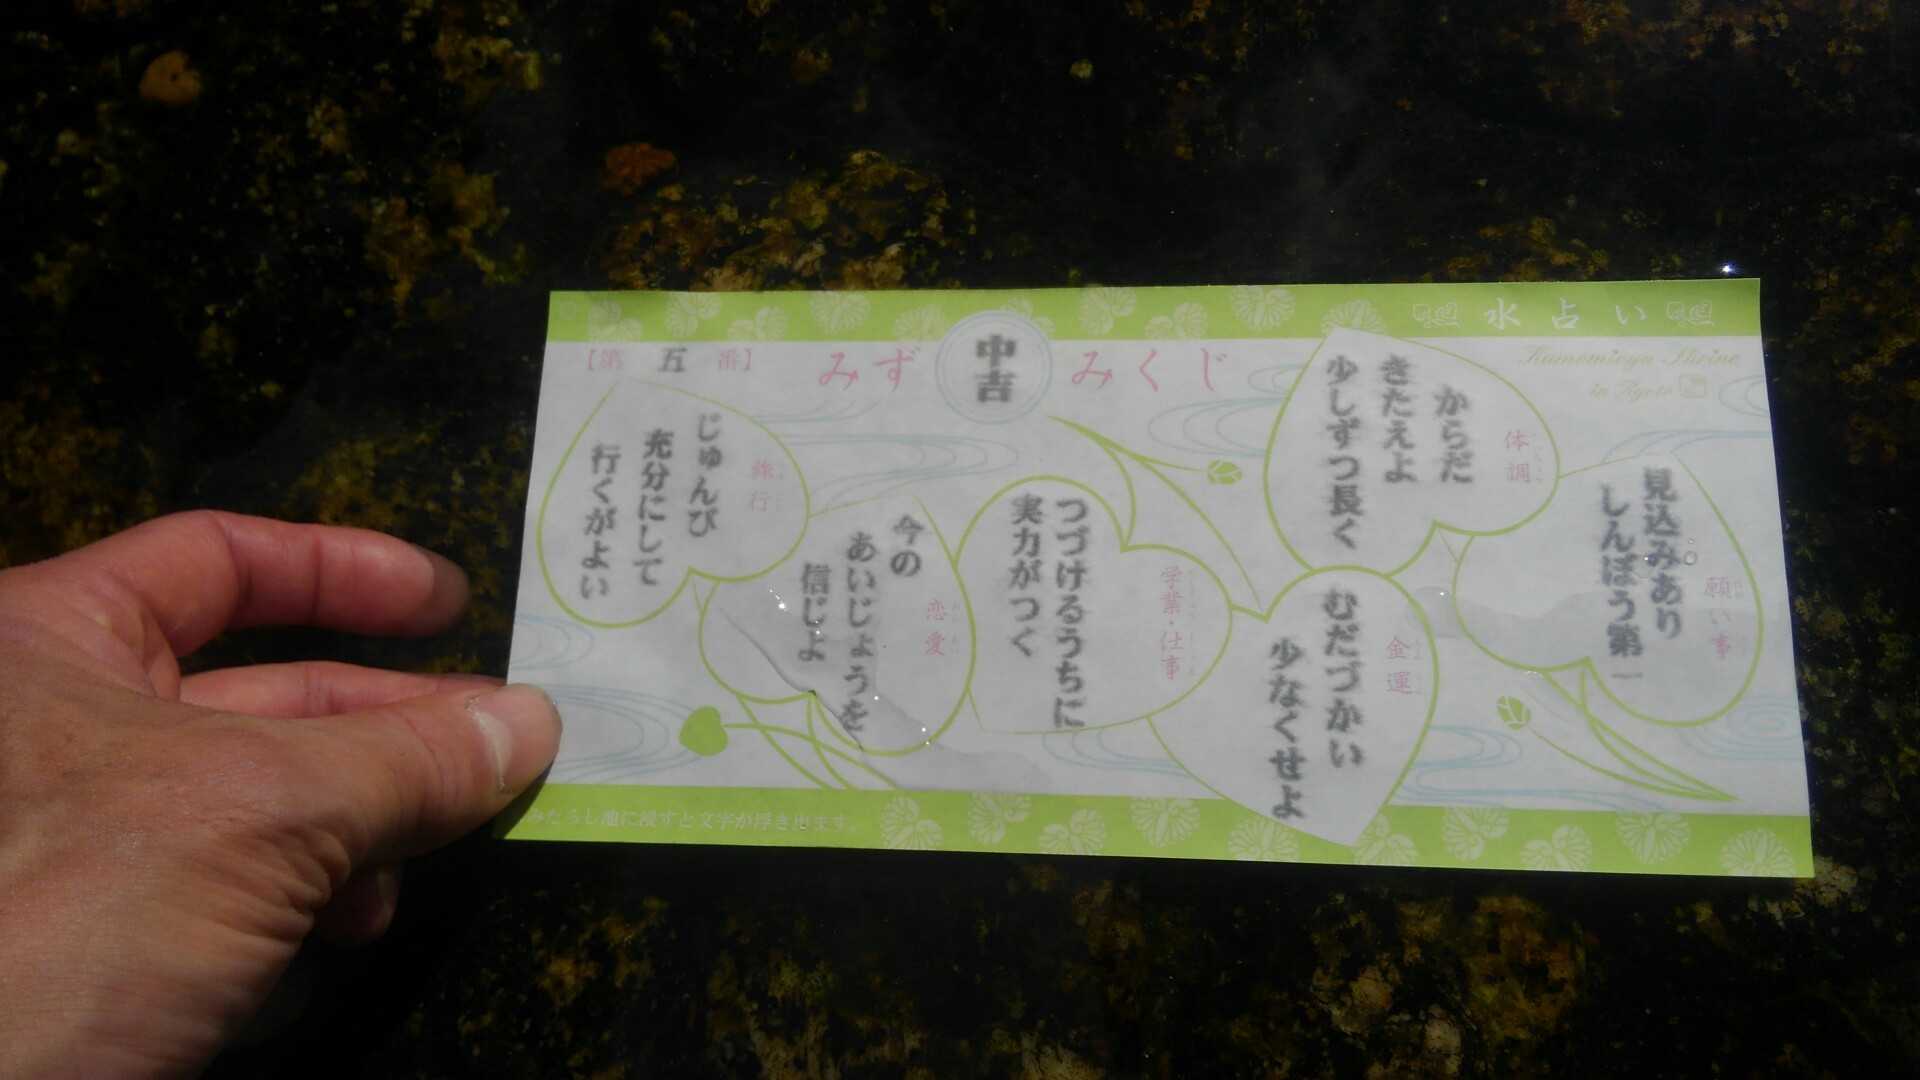 水占い
Kamomioya Shrine
in Kyoto
【第 五 番】
みず
中吉
みくじ
願い事
見込みあり
しんぼう第一
体調
からだ
きたえよ
少しずつ長く
金運
むだづかい
少なくせよ
学業・仕事
つづけるうちに
実力がつく
恋愛
今の
あいじょうを
信じよ
旅行
じゅんび
充分にして
行くがよい
みたらし池に浸すと文字が浮き出ます。